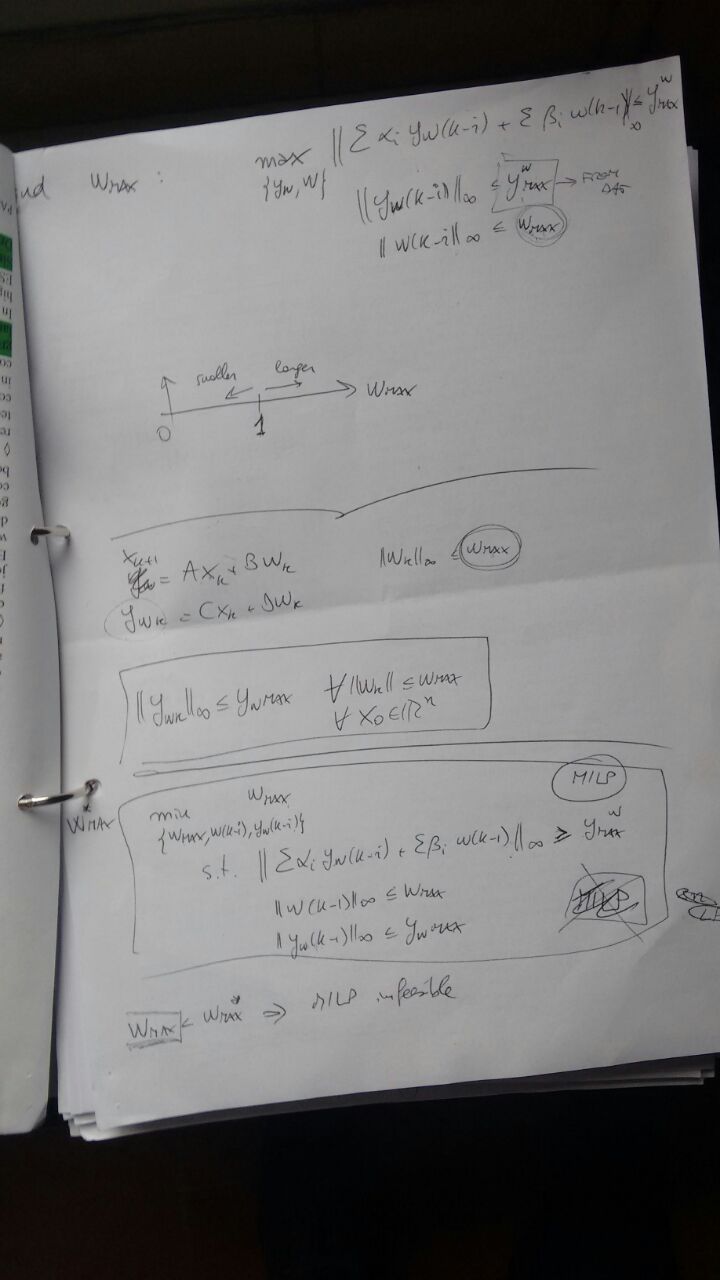 WMAX : max ‖ Σ αi yw(k-i) + Σ βi w(k-i) ‖∞ ≤ yMAX^w
{yw, w}
‖ yw(k-i) ‖∞ ≤ yMAX^w → FROM
‖ w(k-i ‖∞ ≤ WMAX
smaller larger
WMAX
0 1
xk+1 = Axk + Bwk ‖wk‖∞ ≤ WMAX
ywk = Cxk + Dwk
‖ ywk ‖∞ ≤ ywMAX ∀ ‖wk‖ ≤ WMAX
∀ x0 ∈ ℝ^n
MILP
W*MAX
min WMAX
{WMAX, w(k-i), yw(k-i)}
s.t. ‖ Σ αi yw(k-i) + Σ βi w(k-i) ‖∞ ≥ yMAX^w
‖ w(k-i) ‖∞ ≤ WMAX
‖ yw(k-i) ‖∞ ≤ ywMAX
WMAX < WMAX* ⇒ MILP infeasible